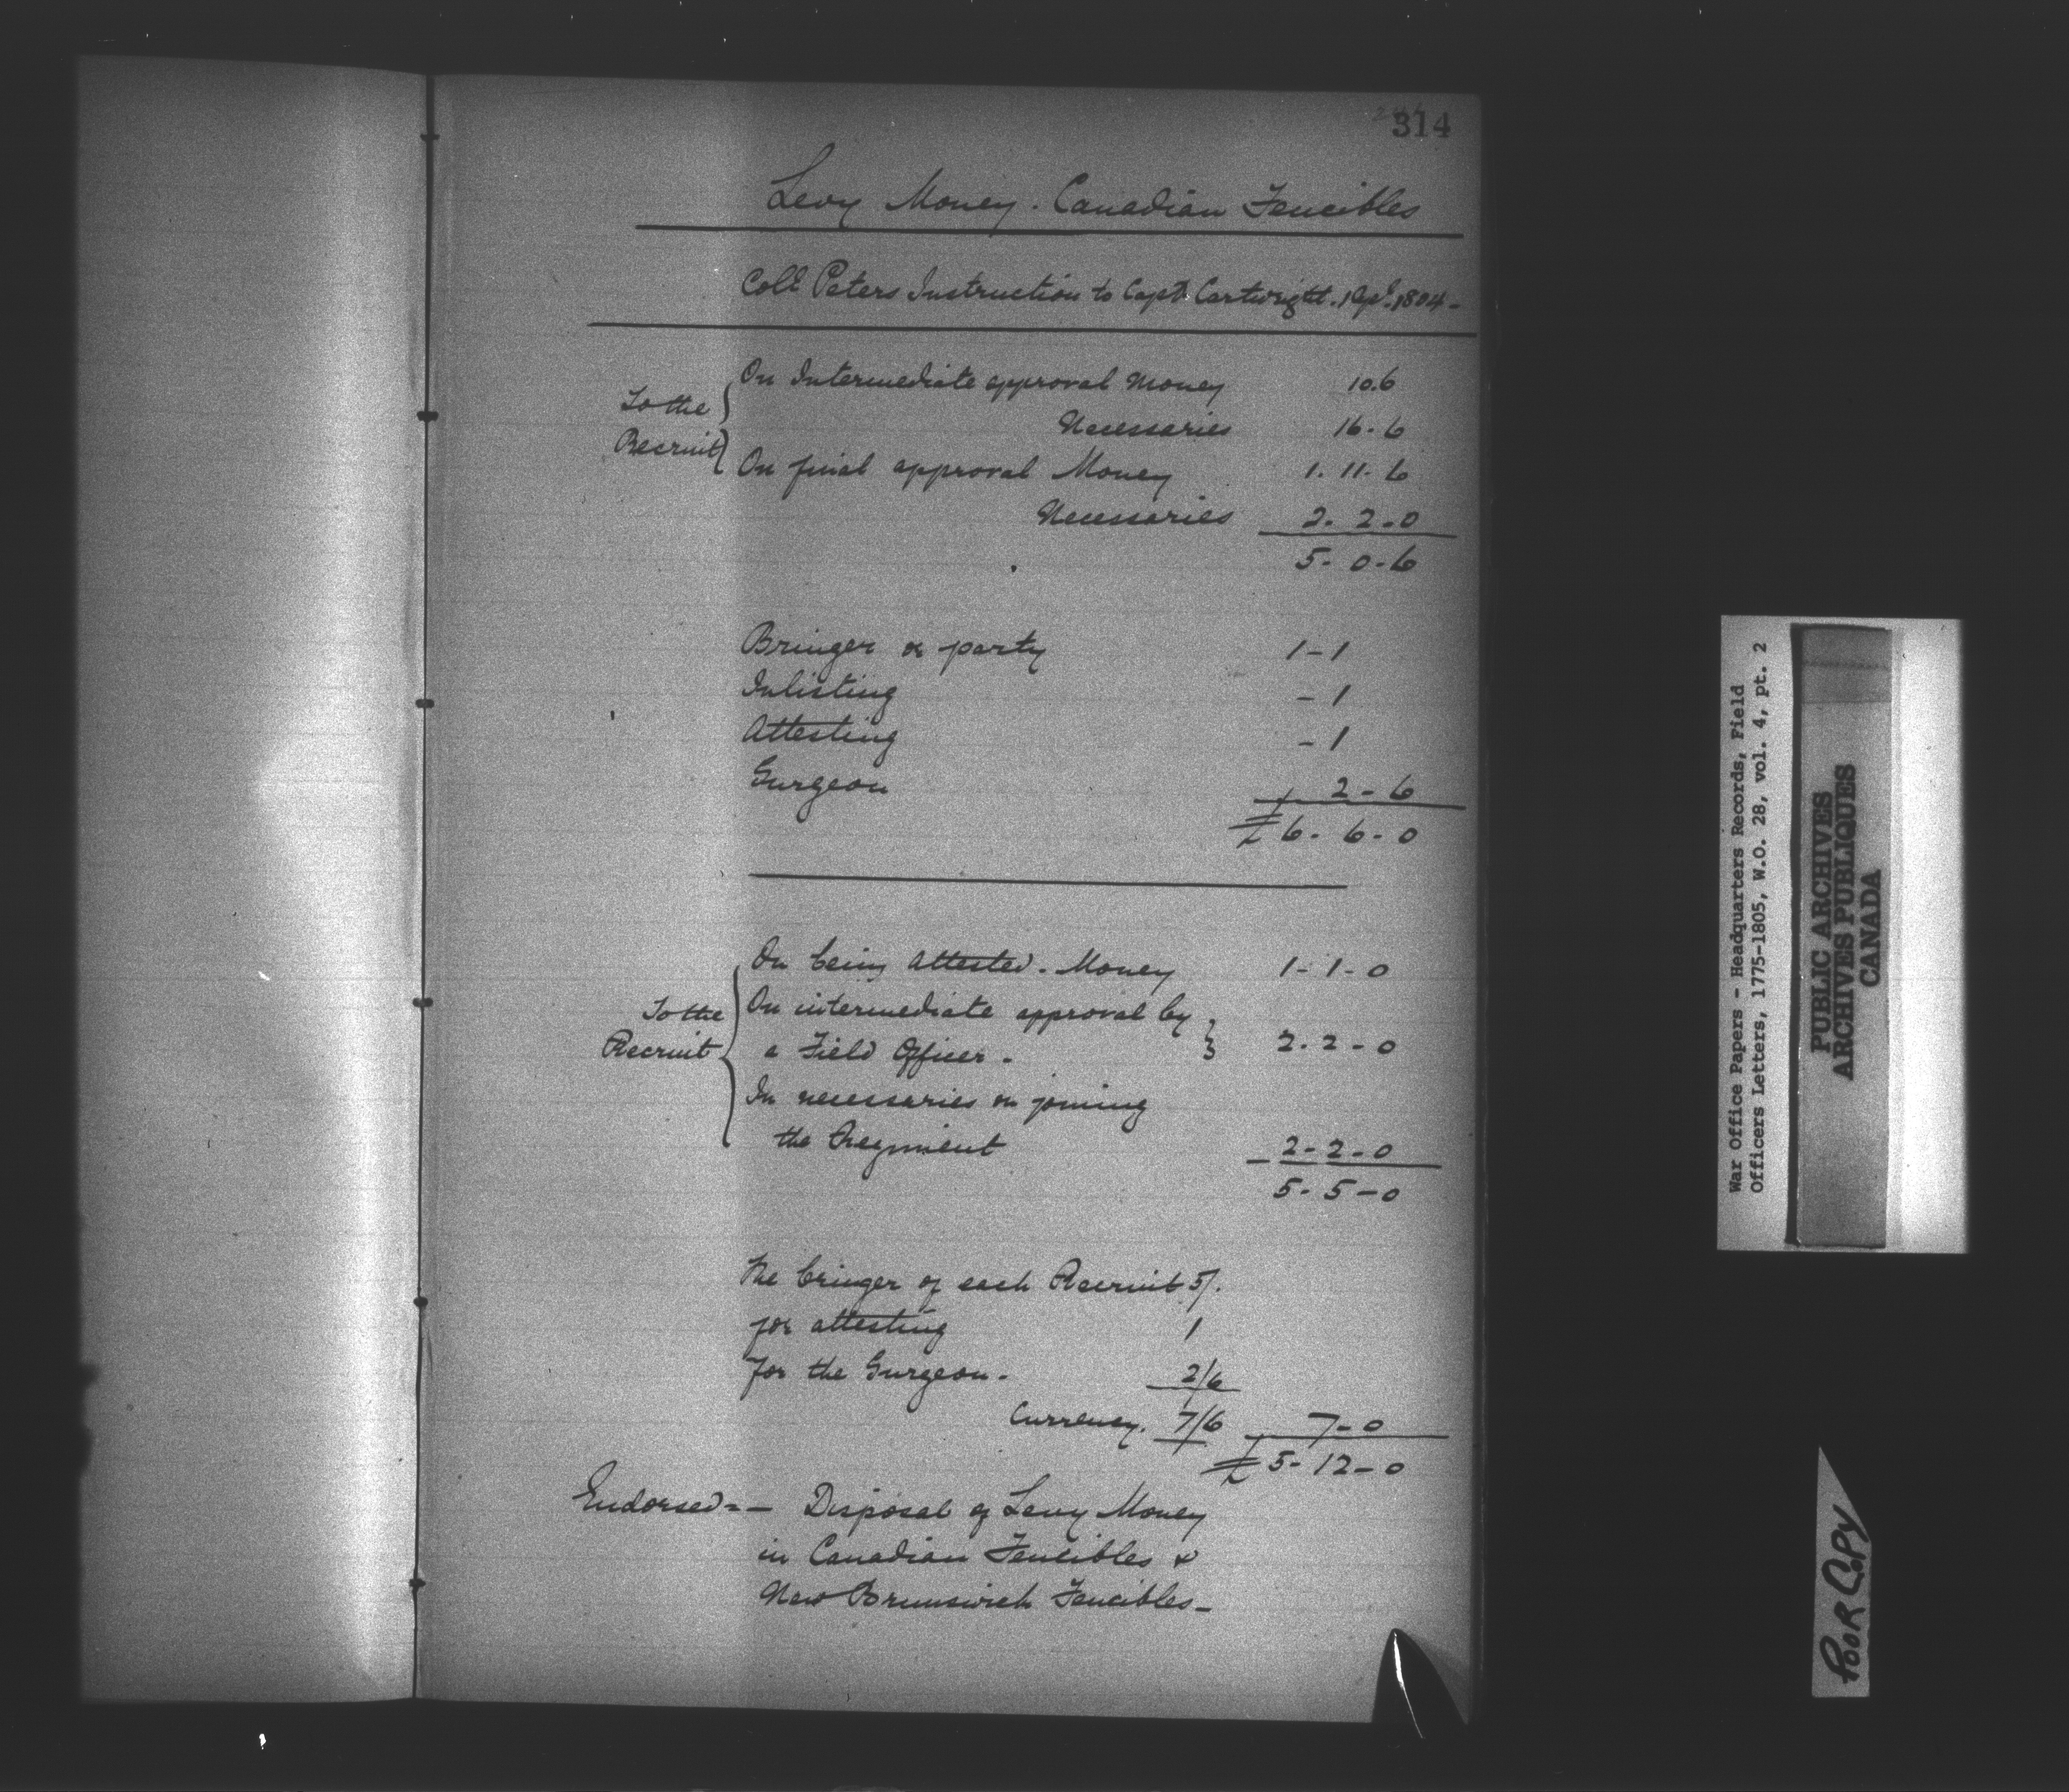 314
Levy Money. Canadian Fencibles
Coll Peters Instruction to Capt. Cartwright. 1 Sepr. 1804-
On Intermediate approval Money 10.6
To the
Necessaries 16-6
Recruit
On final approval Money 1. 11. 6
Necessaries 2. 2-0
5- 0-6
Bringer or party 1-1
Inlisting - 1
Attesting - 1
Surgeon 2-6
£ 6- 6-0
On being attested. Money 1- 1- 0
On intermediate approval by
To the
Recruit
a Field Officer - 2. 2 - 0
In necessaries on joining
the Regiment 2-2-0
5- 5-0
The bringer of each Recruit 5/.
for attesting 1
For the Surgeon. 2/6
Currency. 7/6 7-0
£ 5-12-0
Endorsed = - Disposal of Levy Money
in Canadian Fencibles &
New Brunswick Fencibles-
War Office Papers - Headquarters Records, Field
Officers Letters, 1775-1805, W.O. 28, vol. 4, pt. 2
PUBLIC ARCHIVES
ARCHIVES PUBLIQUES
CANADA
POOR COPY